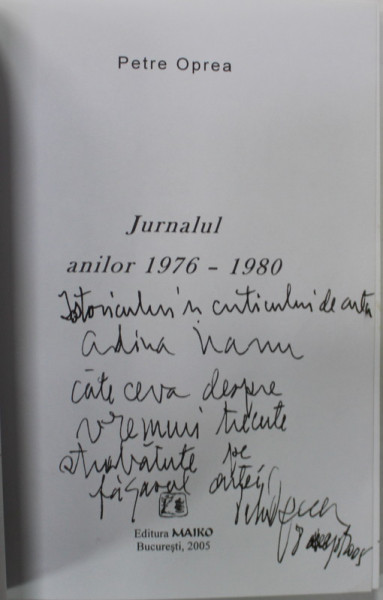 Petre Oprea
Jurnalul
anilor 1976 – 1980
Istoricului și criticului de artă
Adina Nanu
câte ceva despre
vremuri trecute
străbătute pe
făgașul artei,
Petre Oprea
8 sept 2005
Editura MAIKO
București, 2005